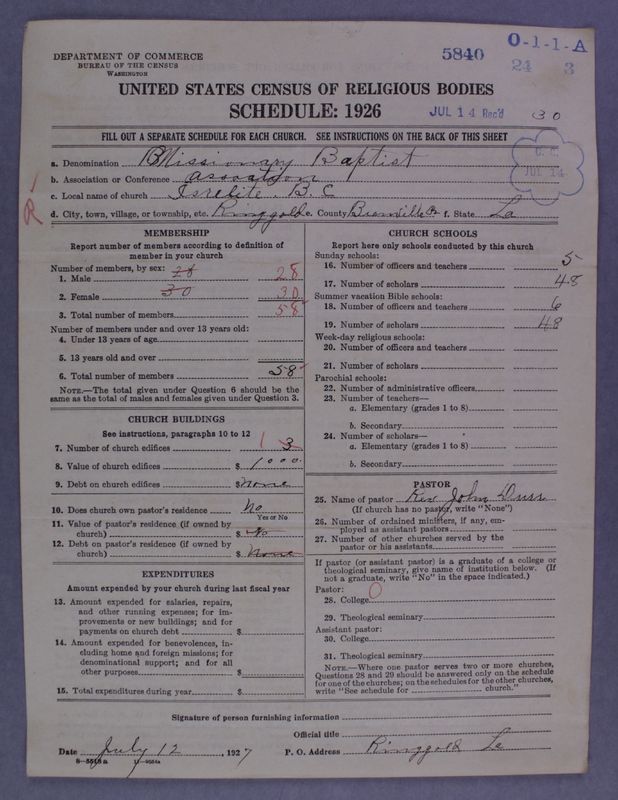 DEPARTMENT OF COMMERCE
BUREAU OF THE CENSUS
WASHINGTON
5840
O-1-1-A
24 3
UNITED STATES CENSUS OF RELIGIOUS BODIES
SCHEDULE: 1926
JUL 14 Rec'd
30
FILL OUT A SEPARATE SCHEDULE FOR EACH CHURCH. SEE INSTRUCTIONS ON THE BACK OF THIS SHEET
a. Denomination Missionary Baptist
b. Association or Conference
JUL 14
c. Local name of church Isrelite. B. C
R
d. City, town, village, or township, etc. Ringgold e. County Bienville Pr f. State La
MEMBERSHIP
Report number of members according to definition of member in your church
Number of members, by sex: 28
1. Male 28
2. Female 30 30
3. Total number of members 58
Number of members under and over 13 years old:
4. Under 13 years of age
5. 13 years old and over
6. Total number of members 58
NOTE.—The total given under Question 6 should be the same as the total of males and females given under Question 3.
CHURCH BUILDINGS
See instructions, paragraphs 10 to 12
7. Number of church edifices 1 3
8. Value of church edifices $ 1000.
9. Debt on church edifices $ none
10. Does church own pastor's residence No
Yes or No
11. Value of pastor's residence (if owned by church) $ No
12. Debt on pastor's residence (if owned by church) $ None
EXPENDITURES
Amount expended by your church during last fiscal year
13. Amount expended for salaries, repairs, and other running expenses; for improvements or new buildings; and for payments on church debt $
14. Amount expended for benevolences, including home and foreign missions; for denominational support; and for all other purposes $
15. Total expenditures during year $
CHURCH SCHOOLS
Report here only schools conducted by this church
Sunday schools:
16. Number of officers and teachers 5
17. Number of scholars 48
Summer vacation Bible schools:
18. Number of officers and teachers 6
19. Number of scholars 48
Week-day religious schools:
20. Number of officers and teachers
21. Number of scholars
Parochial schools:
22. Number of administrative officers
23. Number of teachers—
a. Elementary (grades 1 to 8)
b. Secondary
24. Number of scholars—
a. Elementary (grades 1 to 8)
b. Secondary
PASTOR
25. Name of pastor Rev John
(If church has no pastor, write "None")
26. Number of ordained ministers, if any, employed as assistant pastors
27. Number of other churches served by the pastor or his assistants
If pastor (or assistant pastor) is a graduate of a college or theological seminary, give name of institution below. (If not a graduate, write "No" in the space indicated.)
Pastor:
28. College 0
29. Theological seminary
Assistant pastor:
30. College
31. Theological seminary
NOTE.—Where one pastor serves two or more churches, Questions 28 and 29 should be answered only on the schedule for one of the churches; on the schedules for the other churches, write "See schedule for church."
Signature of person furnishing information
Official title
Date July 12, 1927 P. O. Address Ringgold La